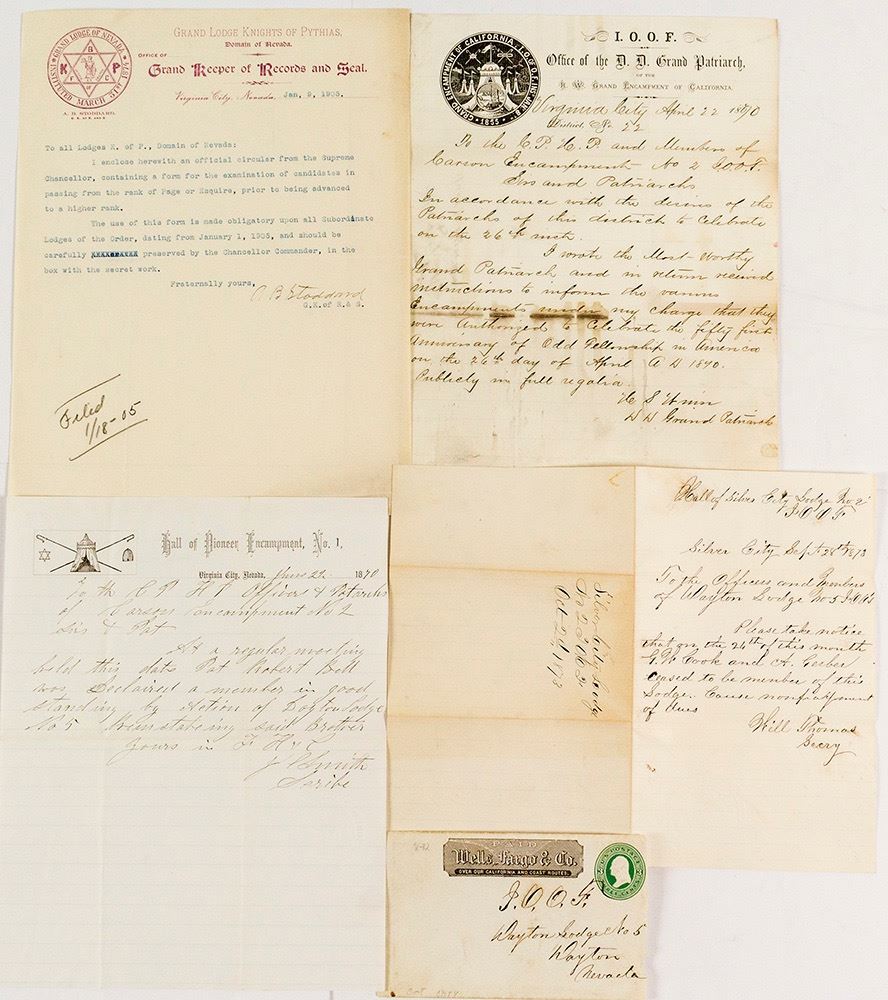 GRAND LODGE KNIGHTS OF PYTHIAS,
Domain of Nevada.
OFFICE OF
Grand Keeper of Records and Seal.
GRAND LODGE OF NEVADA
INSTITUTED MARCH
K P
F C B
A. B. STODDARD.
Virginia City, Nevada, Jan. 9, 1905.
To all Lodges K. of P., Domain of Nevada:
I enclose herewith an official circular from the Supreme
Chancellor, containing a form for the examination of candidates in
passing from the rank of Page or Esquire, prior to being advanced
to a higher rank.
The use of this form is made obligatory upon all Subordinate
Lodges of the Order, dating from January 1, 1905, and should be
carefully preserved by the Chancellor Commander, in the
box with the secret work.
Fraternally yours,
A B Stoddard
G.K.of R.& S.
Filed
1/18-05
GRAND ENCAMPMENT OF CALIFORNIA. I.O.O.F.
1855
I. O. O. F.
Office of the D. D. Grand Patriarch,
OF THE
R. W. GRAND ENCAMPMENT OF CALIFORNIA.
Virginia City April 22 1870
District No. 22
To the C. P. H. P and Members of
Carson Encampment No 2 I.O.O.F.
Sirs and Patriarchs
In accordance with the desires of the
Patriarchs of this district to Celebrate
on the 26th inst.
I wrote the Most Worthy
Grand Patriarch and in return received
instructions to inform the various
Encampments under my charge that they
were Authorized to Celebrate the fifty first
Anniversary of Odd Fellowship in America
on the 26th day of April A D 1870.
Publicly in full regalia.
D D Grand Patriarch
Hall of Pioneer Encampment, No. 1,
Virginia City, Nevada, 1870
To the C P H P Officers & Patriarchs
of Carson Encampment No 2
Sirs & Pat
At a regular meeting
held this date Pat Robert Bell
was Declaired a member in good
standing by Action of Dayton Lodge
No 5 said Brother
Yours in F H & C
J Smith
Scribe
Silver City Lodge
No 2 I.O.O.F.
Oct 2d 1873
Hall of Silver City Lodge No. 2
I O O F
Silver City Sept 28th 1873
To the Officers and Members
of Dayton Lodge No 5 I.O.O.F.
Please take notice
that on the 24th of this month
G. W. Cook and A. Gerber
ceased to be member of this
Lodge. Cause nonpayment
of dues
Will Thomas
Secry
PAID
Wells, Fargo & Co.
OVER OUR CALIFORNIA AND COAST ROUTES.
U.S. POSTAGE
I. O. O. F.
Dayton Lodge No 5
Dayton
Nevada